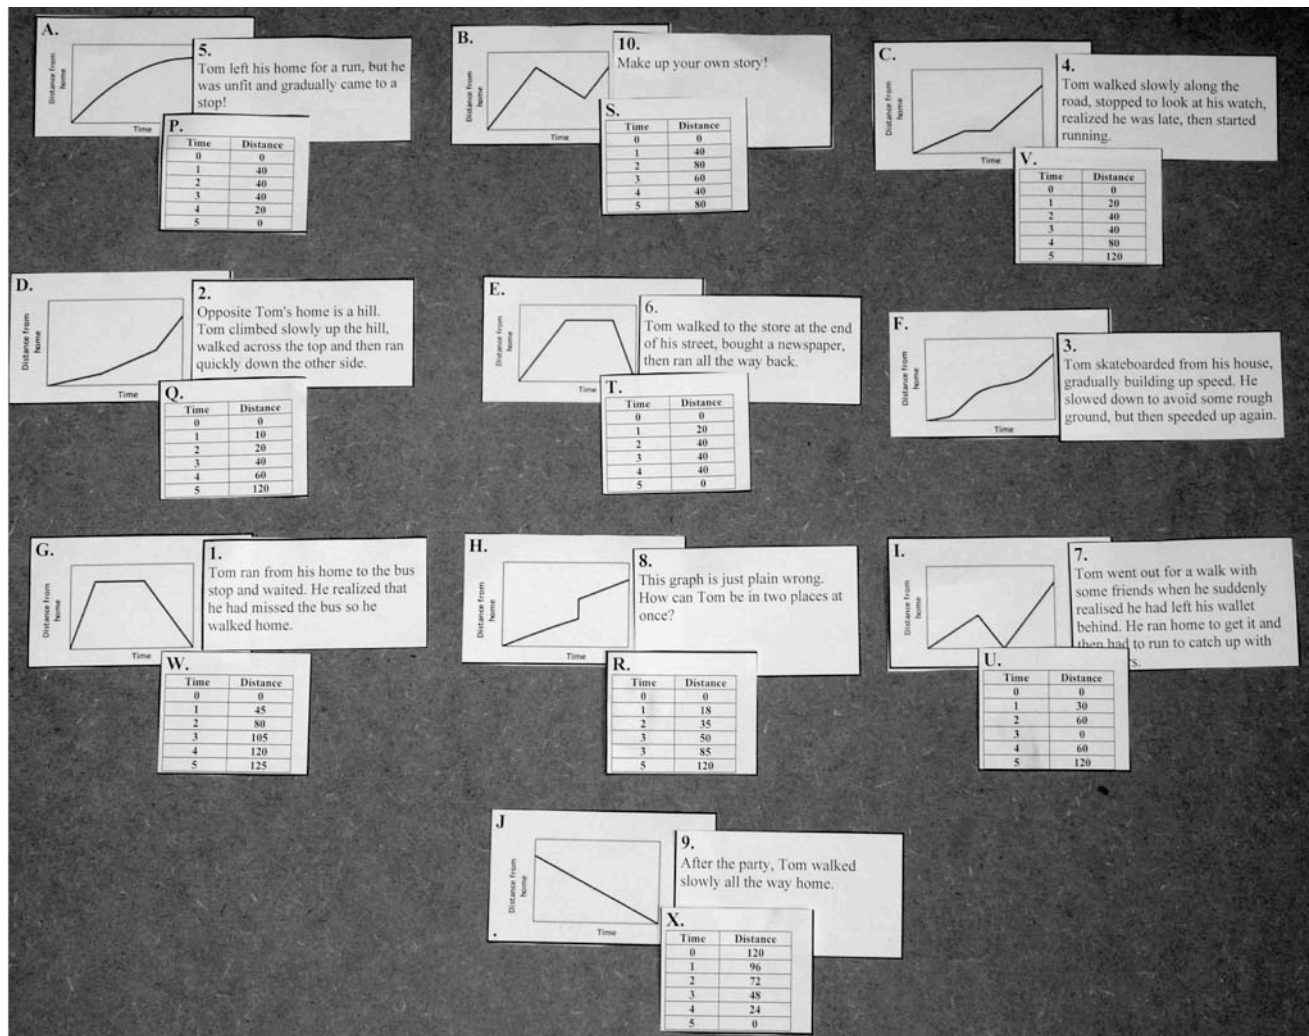 A.
Distance from
home
Time
5.
Tom left his home for a run, but he
was unfit and gradually came to a
stop!
P.
Time Distance
0 0
1 40
2 40
3 40
4 20
5 0
B.
Distance from
home
10.
Make up your own story!
S.
Time Distance
0 0
1 40
2 80
3 60
4 40
5 80
C.
Distance from
home
Time
4.
Tom walked slowly along the
road, stopped to look at his watch,
realized he was late, then started
running.
V.
Time Distance
0 0
1 20
2 40
3 40
4 80
5 120
D.
Distance from
home
Time
2.
Opposite Tom's home is a hill.
Tom climbed slowly up the hill,
walked across the top and then ran
quickly down the other side.
Q.
Time Distance
0 0
1 10
2 20
3 40
4 60
5 120
E.
Distance from
home
Time
6.
Tom walked to the store at the end
of his street, bought a newspaper,
then ran all the way back.
T.
Time Distance
0 0
1 20
2 40
3 40
4 40
5 0
F.
Distance from
home
Time
3.
Tom skateboarded from his house,
gradually building up speed. He
slowed down to avoid some rough
ground, but then speeded up again.
G.
Distance from
home
Time
1.
Tom ran from his home to the bus
stop and waited. He realized that
he had missed the bus so he
walked home.
W.
Time Distance
0 0
1 45
2 80
3 105
4 120
5 125
H.
Distance from
home
Time
8.
This graph is just plain wrong.
How can Tom be in two places at
once?
R.
Time Distance
0 0
1 18
2 35
3 50
3 85
5 120
I.
Distance from
home
Time
7.
Tom went out for a walk with
some friends when he suddenly
realised he had left his wallet
behind. He ran home to get it and
then had to run to catch up with
U.
Time Distance
0 0
1 30
2 60
3 0
4 60
5 120
J
Distance from
home
Time
9.
After the party, Tom walked
slowly all the way home.
X.
Time Distance
0 120
1 96
2 72
3 48
4 24
5 0